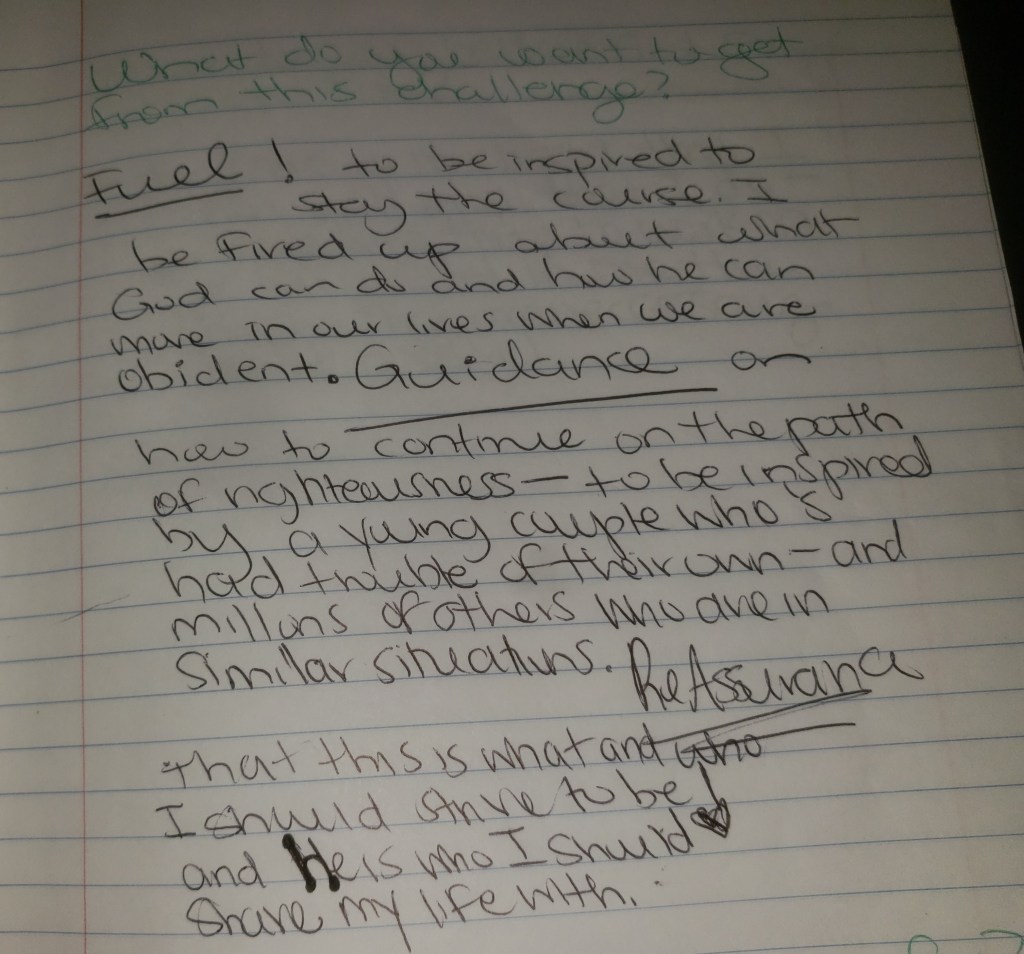 What do you want to get
from this challenge?
Fuel! to be inspired to
stay the course. I
be fired up about what
God can do and how he can
move in our lives when we are
obident. Guidance on
how to continue on the path
of righteousness - to be inspired
by a young couple who's
had trouble of their own - and
millons of others who are in
similar situations. ReAssurance
that this is what and who
I should strive to be!
and He is who I should
share my life with.